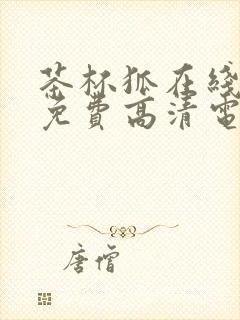 茶杯狐在线
免费高清电
唐僧